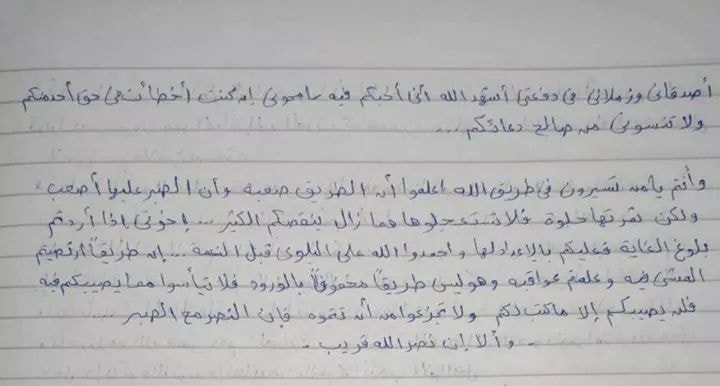 أصدقائي وزملائي في دفعتي أشهد الله أني أحبكم فيه سامحوني إن كنت أخطأت في حق أحد منكم
ولا تنسوني من صالح دعائكم ...
وأنتم يا من تسيرون في طريق الله اعلموا أن الطريق صعبة وأن الصبر عليها أصعب
ولكن ثمرتها حلوة فلا تستعجلوها فما زال ينقصكم الكثير ... إخوتي إذا أردتم
بلوغ الغاية فعليكم بالإعداد لها واحمدوا الله على البلوى قبل النعمة ... إن طريقاً ارتضيتم
المشي فيه وعلمتم عواقبه وهو ليس طريقاً محفوفاً بالورود فلا تيأسوا مما يصيبكم فيه
فلن يصيبكم إلا ما كتب لكم ولا تجزعوا من أن تتموه فإن النصر مع الصبر ...
وألا إن نصر الله قريب .